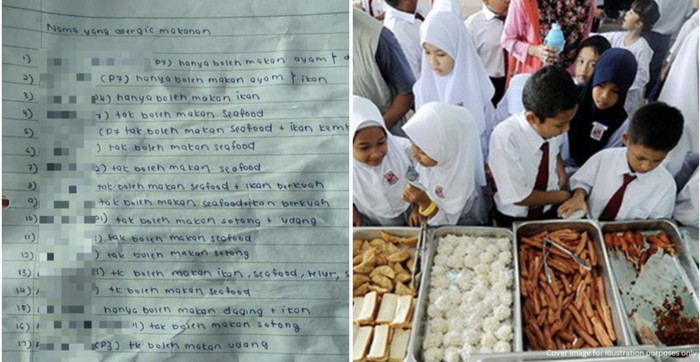 Nama yang alergic makanan
1) P4) hanya boleh makan ayam +
2) (P7) hanya boleh makan ayam + ikan
3) P4) hanya boleh makan ikan
4) ) tak boleh makan seafood
5) (P4 tak boleh makan seafood + ikan kemb
6) ) tak boleh makan seafood
7) 2) tak boleh makan seafood
8) tak boleh makan seafood + ikan berkuah
9) tak boleh makan seafood+ikan berkuah
10) P1) tak boleh makan sotong + udang
11) ) tak boleh makan seafood
12) ) tak boleh makan sotong
13) 1) tk boleh makan ikan, seafood, telur, s
14) ) tk boleh makan seafood
15) hanya boleh makan daging + ikan
16) 1) tak boleh makan sotong
17) (P3) tk boleh makan udang
Cover image for illustration purposes only